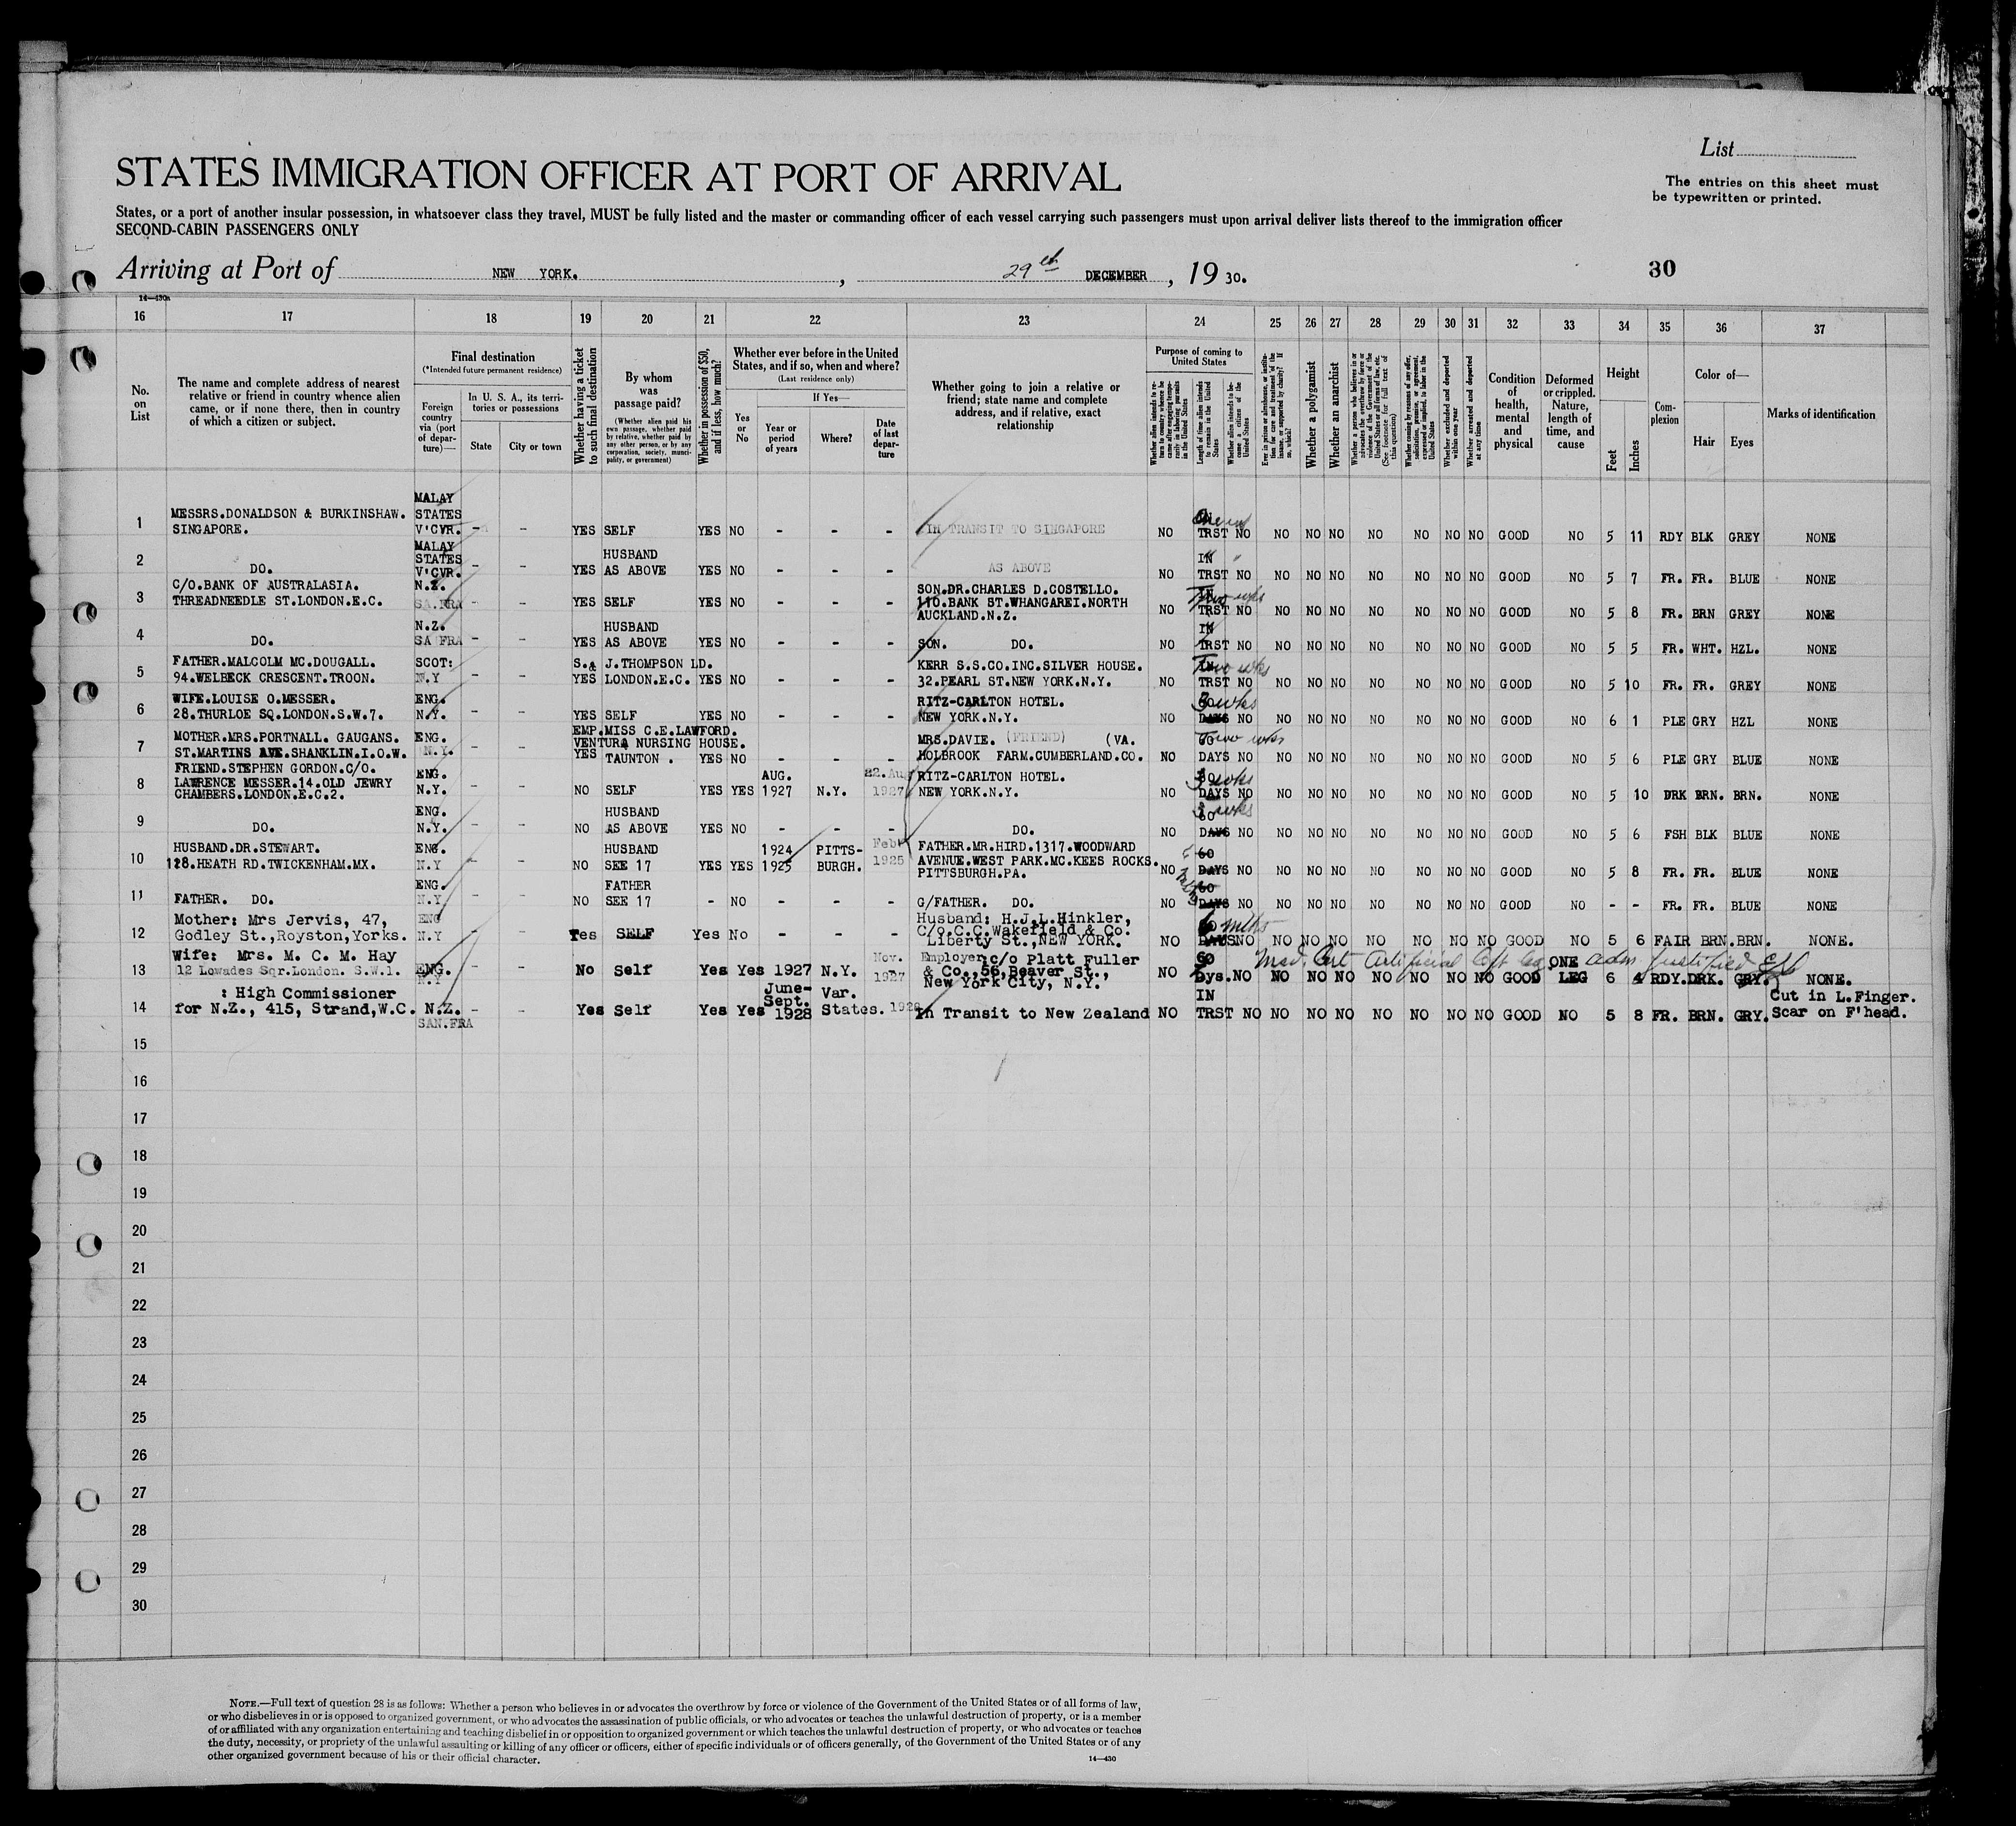 List
STATES IMMIGRATION OFFICER AT PORT OF ARRIVAL
The entries on this sheet must
be typewritten or printed.
States, or a port of another insular possession, in whatsoever class they travel, MUST be fully listed and the master or commanding officer of each vessel carrying such passengers must upon arrival deliver lists thereof to the immigration officer
SECOND-CABIN PASSENGERS ONLY
Arriving at Port of NEW YORK. , 29th DECEMBER , 19 30. 30
14—430a
16 17 18 19 20 21 22 23 24 25 26 27 28 29 30 31 32 33 34 35 36 37
No. on List
The name and complete address of nearest
relative or friend in country whence alien
came, or if none there, then in country
of which a citizen or subject.
Final destination
(*Intended future permanent residence)
Foreign country via (port of departure)—
In U. S. A., its territories or possessions
State City or town
Whether having a ticket to such final destination
By whom was passage paid?
(Whether alien paid his own passage, whether paid by relative, whether paid by any other person, or by any corporation, society, municipality, or government)
Whether in possession of $50, and if less, how much?
Whether ever before in the United States, and if so, when and where?
(Last residence only)
Yes or No
If Yes—
Year or period of years
Where?
Date of last departure
Whether going to join a relative or
friend; state name and complete
address, and if relative, exact
relationship
Purpose of coming to United States
Length of time alien intends to remain in the United States
Whether alien intends to become a citizen of the United States
Whether a polygamist
Whether an anarchist
Whether excluded and deported within one year
Whether arrested and deported at any time
Condition of health, mental and physical
Deformed or crippled. Nature, length of time, and cause
Height
Feet Inches
Complexion
Color of—
Hair Eyes
Marks of identification
1 MESSRS.DONALDSON & BURKINSHAW. SINGAPORE. MALAY STATES V'CVR. - - YES SELF YES NO - - - IN TRANSIT TO SINGAPORE NO TRST NO NO NO NO NO NO NO NO GOOD NO 5 11 RDY BLK GREY NONE
2 DO. MALAY STATES V'CVR. - - YES HUSBAND AS ABOVE YES NO - - - AS ABOVE NO IN TRST NO NO NO NO NO NO NO NO GOOD NO 5 7 FR. FR. BLUE NONE
3 C/O.BANK OF AUSTRALASIA. THREADNEEDLE ST.LONDON.E.C. N.Z. SA.FRA - - YES SELF YES NO - - - SON.DR.CHARLES D.COSTELLO. 110.BANK ST.WHANGAREI.NORTH AUCKLAND.N.Z. NO IN TRST Two wks NO NO NO NO NO NO NO NO GOOD NO 5 8 FR. BRN GREY NONE
4 DO. N.Z. SA FRA - - YES HUSBAND AS ABOVE YES NO - - - SON. DO. NO IN TRST NO NO NO NO NO NO NO NO GOOD NO 5 5 FR. WHT. HZL. NONE
5 FATHER.MALCOLM MC.DOUGALL. 94.WELBECK CRESCENT.TROON. SCOT: N.Y - - YES S.& J.THOMPSON LD. LONDON.E.C. YES NO - - - KERR S.S.CO.INC.SILVER HOUSE. 32.PEARL ST.NEW YORK.N.Y. NO IN TRST Two wks NO NO NO NO NO NO NO NO GOOD NO 5 10 FR. FR. GREY NONE
6 WIFE.LOUISE O.MESSER. 28.THURLOE SQ.LONDON.S.W.7. ENG. N.Y. - - YES SELF YES NO - - - RITZ-CARLTON HOTEL. NEW YORK.N.Y. NO 60 DAYS 3 wks NO NO NO NO NO NO NO NO GOOD NO 6 1 PLE GRY HZL NONE
7 MOTHER.MRS.PORTNALL. GAUGANS. ST.MARTINS AVE.SHANKLIN.I.O.W. ENG. N.Y. - - YES EMP.MISS C.E.LAWFORD. VENTURA NURSING HOUSE. TAUNTON . YES NO - - - MRS.DAVIE. (FRIEND) (VA. HOLBROOK FARM.CUMBERLAND.CO. NO 60 DAYS Two wks NO NO NO NO NO NO NO NO GOOD NO 5 6 PLE GRY BLUE NONE
8 FRIEND.STEPHEN GORDON.C/O. LAWRENCE MESSER.14.OLD JEWRY CHAMBERS.LONDON.E.C.2. ENG. N.Y. - - NO SELF YES YES AUG. 1927 N.Y. 22.Aug 1927 RITZ-CARLTON HOTEL. NEW YORK.N.Y. NO DAYS 3 wks NO NO NO NO NO NO NO NO GOOD NO 5 10 DRK BRN. BRN. NONE
9 DO. ENG. N.Y. - - NO HUSBAND AS ABOVE YES NO - - - DO. NO 60 DAYS 3 wks NO NO NO NO NO NO NO NO GOOD NO 5 6 FSH BLK BLUE NONE
10 HUSBAND.DR.STEWART. 128.HEATH RD.TWICKENHAM.MX. ENG. N.Y - - NO HUSBAND SEE 17 YES YES 1924 1925 PITTS-BURGH. Feb 1925 FATHER.MR.HIRD.1317.WOODWARD AVENUE.WEST PARK.MC.KEES ROCKS. PITTSBURGH.PA. NO 60 DAYS NO NO NO NO NO NO NO NO GOOD NO 5 8 FR. FR. BLUE NONE
11 FATHER. DO. ENG. N.Y. - - NO FATHER SEE 17 - NO - - - G/FATHER. DO. NO 60 DAYS NO NO NO NO NO NO NO NO GOOD NO - - FR. FR. BLUE NONE
12 Mother: Mrs Jervis, 47, Godley St.,Royston,Yorks. ENG N.Y - - Yes SELF Yes No - - - Husband: H.J.L.Hinkler, C/o.C.C.Wakefield & Co. Liberty St.,NEW YORK. NO DAYS 6 mths NO NO NO NO NO NO NO NO GOOD NO 5 6 FAIR BRN. BRN. NONE.
13 Wife: Mrs. M. C. M. Hay 12 Lowndes Sqr.London. S.W.1. ENG. N.Y - - No Self Yes Yes 1927 N.Y. Nov. 1927 Employer: c/o Platt Fuller & Co.,56,Beaver St., New York City, N.Y. NO 60 Dys. NO NO NO NO NO NO NO NO GOOD ONE LEG 6 4 RDY. DRK. GRY. NONE.
Med. Cert Artificial left leg adm justified
14 : High Commissioner for N.Z., 415, Strand,W.C. N.Z. SAN.FRA - - Yes Self Yes Yes June-Sept. 1928 Var. States. 1928 In Transit to New Zealand NO IN TRST NO NO NO NO NO NO NO NO GOOD NO 5 8 FR. BRN. GRY. Cut in L.Finger. Scar on F'head.
15
16
17
18
19
20
21
22
23
24
25
26
27
28
29
30
NOTE.—Full text of question 28 is as follows: Whether a person who believes in or advocates the overthrow by force or violence of the Government of the United States or of all forms of law,
or who disbelieves in or is opposed to organized government, or who advocates the assassination of public officials, or who advocates or teaches the unlawful destruction of property, or is a member
of or affiliated with any organization entertaining and teaching disbelief in or opposition to organized government or which teaches the unlawful destruction of property, or who advocates or teaches
the duty, necessity, or propriety of the unlawful assaulting or killing of any officer or officers, either of specific individuals or of officers generally, of the Government of the United States or of any
other organized government because of his or their official character.
14—430